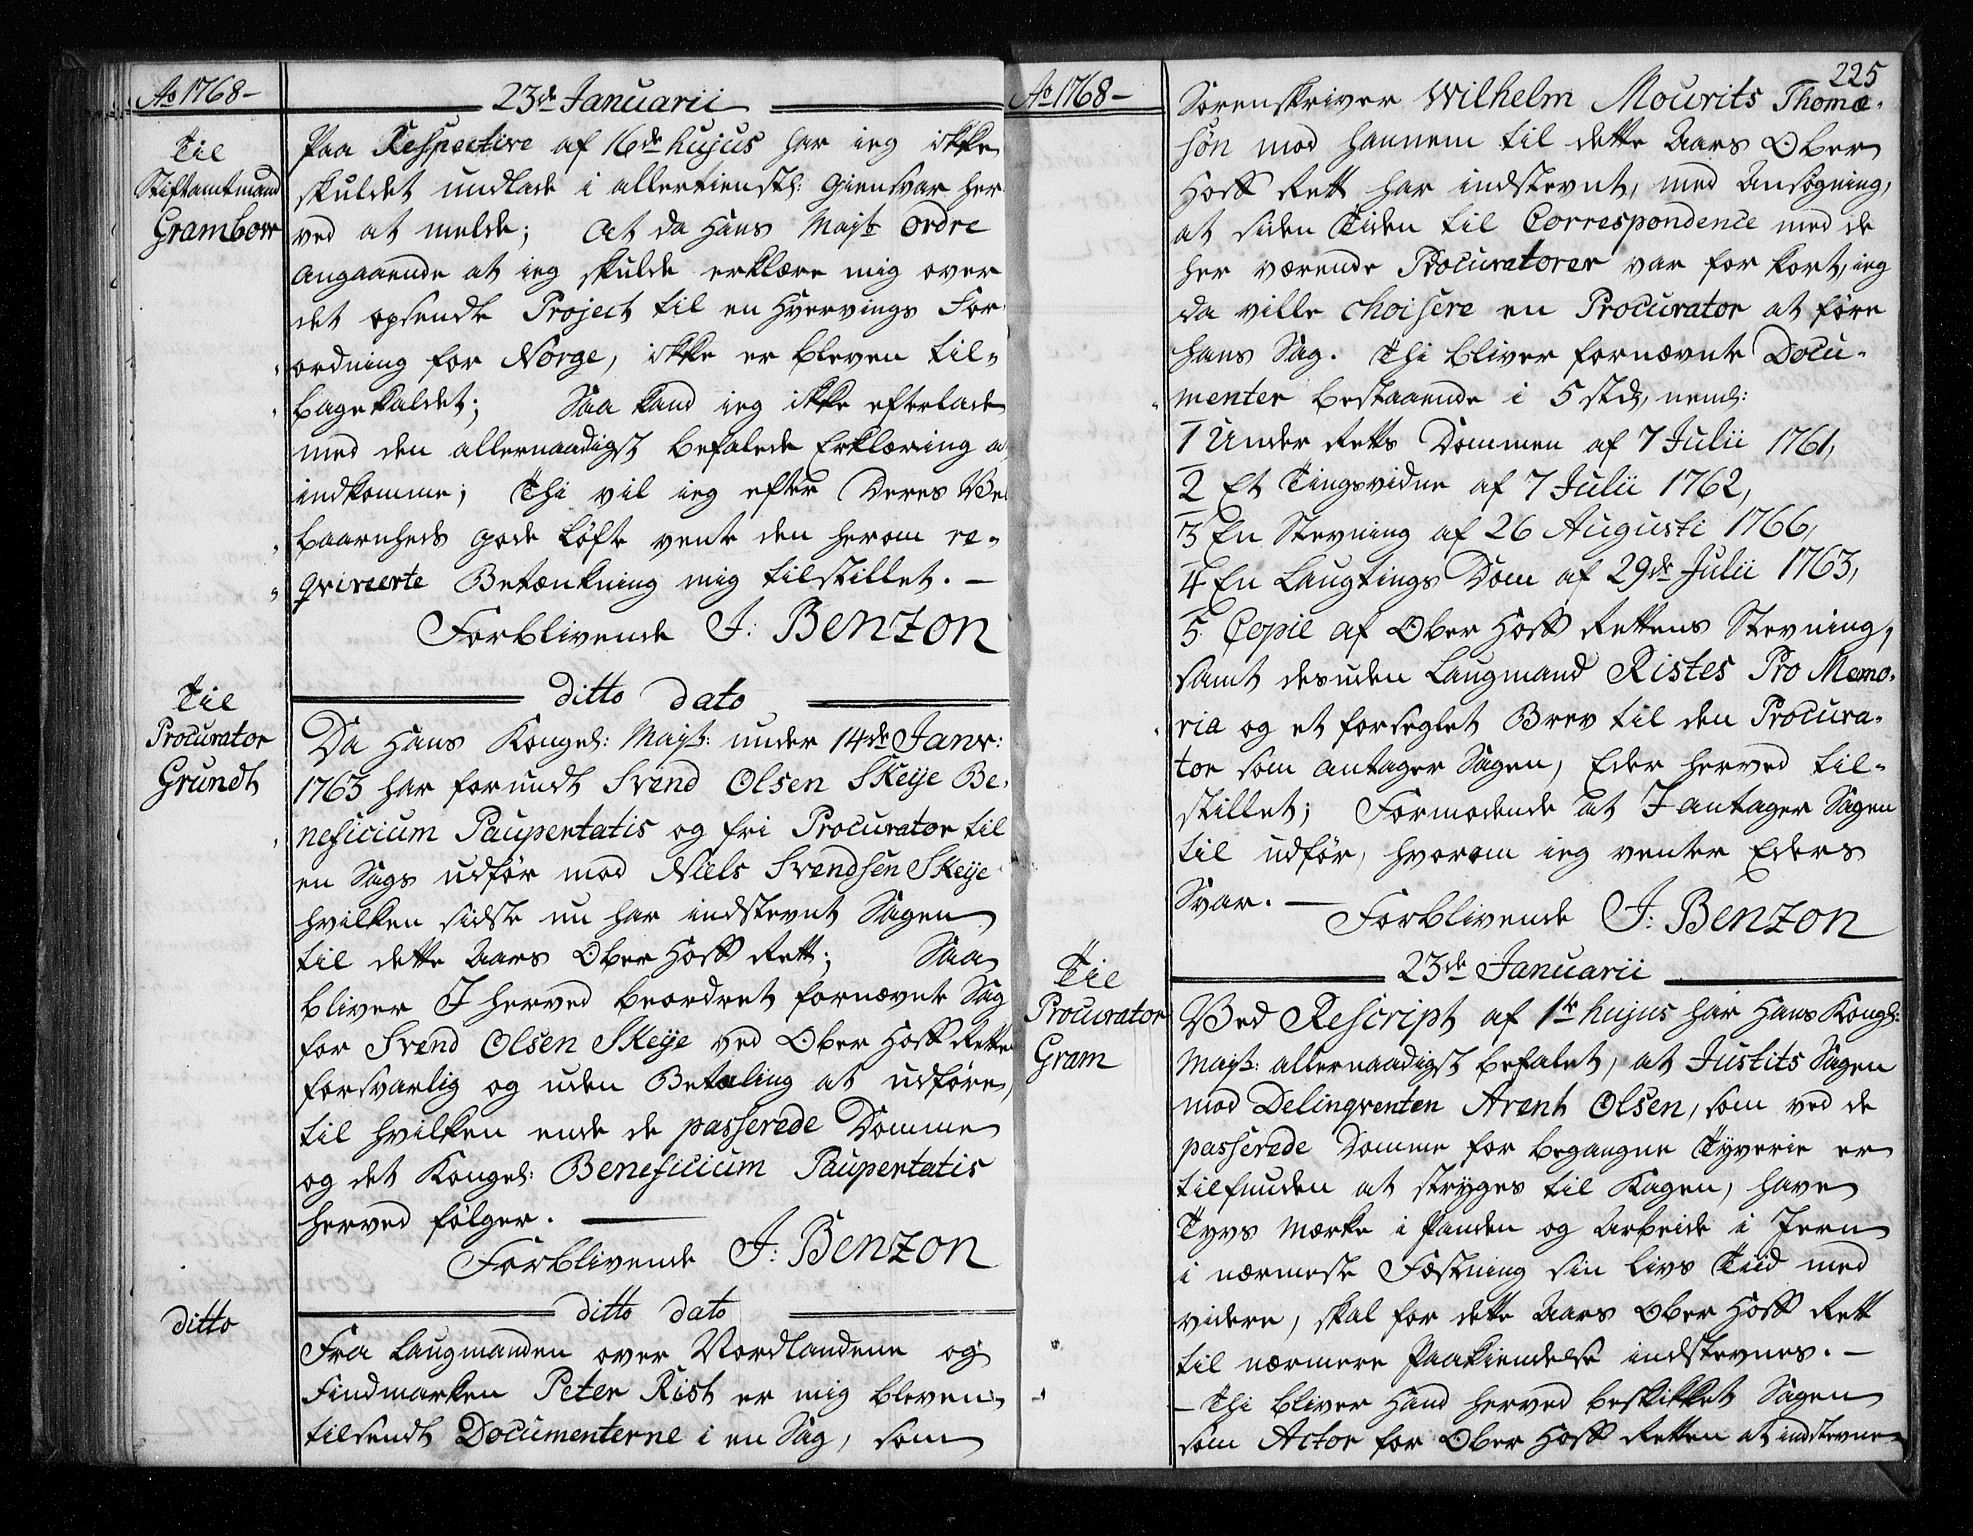 Ao 1768-
23de Januarii
Til
Stiftamtmand
Grambow
Paa Respective af 16de hujus har ieg ikke
skuldet undlade i allertienstl: Giensvar her
ved at melde; At da Hans Mayt: Ordre
angaaende at ieg skulde erklære mig over
det opsendte Project til en Hvervings For
ordning for Norge, ikke er bleven til-
bagekaldet; Saa kand ieg ikke efterlade
med den allernaadigst befalede Erklæring a
indkomme; Thi vil ieg efter Deres Vel
baarenheds gode Løfte vente den herom re-
qvireerte Betænkning mig tilstillet. -
Forblivende J: Benzon
ditto dato
Til
Procurator
Grundt
Da Hans Kongel: Mayt: under 14de Janr:
1763 har forundt Svend Olsen Skeije Be-
neficium Paupertatis og fri Procurator til
en Sags udfør mod Niels Svendsen Skeije
hvilken sidste nu har indstevnt Sagen
til dette Aars Ober Hoff Rett; Saa
bliver I herved beordret fornævnte Sag
for Svend Olsen Skeije ved Ober Hoff Retten
forsvarlig og uden Betaling at udføre,
til hvilken ende de passerede Domme
og det Kongel: Beneficium Paupertatis
herved følger.
Forblivende J: Benzon
ditto dato
ditto
Fra Laugmanden over Nordlandene og
Findmarken Peter Rist er mig bleven
tilsendt Documenterne i en Sag, som
225
Ao 1768-
Sorenskriver Wilhelm Mourits Thomæ-
søn mod hannem til dette Aars Ober
Hoff Rett har indstevnt, med Ansøgning,
at siden Tiden til Correspondence med de
her værende Procuratorer var for kort, ieg
da ville choisere en Procurator at føre
hans Sag. Thi bliver fornævnte Docu-
menter bestaaende i 5 stk, neml:
1 Under Retts Dommen af 7 Julii 1761,
2 Et Tingsvidne af 7 Julii 1762,
3 En Stevning af 26 Augusti 1766,
4 En Laugtings Dom af 29de Julii 1763,
5. Copie af Ober Hoff Rettens Stevning,
samt desuden Laugmand Ristes Pro Memo-
ria og et forseglet Brev til den Procura-
tor som antager Sagen, Eder herved til-
stillet; Formodende at I antager Sagen
til udfør, hvorom ieg venter Eders
Svar. -
Forblivende J: Benzon
23de Januarii
Til
Procurator
Gram
Ved Rescript af 1te hujus har Hans Kongl:
Mayt: allernaadigst befalet, at Justits Sagen
mod Delinqventen Arent Olsen, som ved de
passerede Domme for begangne Tyverie er
tilfunden at stryges til Kagen, have
Tyvs Mærke i Panden og Arbeide i Jern
i nærmeste Fæstning sin Livs Tiid med
videre, skal for dette Aars Ober Hoff Rett
til nærmere Paakiendelse indstevnes. -
- Thi bliver Hand herved beskikket Sagen
som Actor for Ober Hoff Retten at indstevne